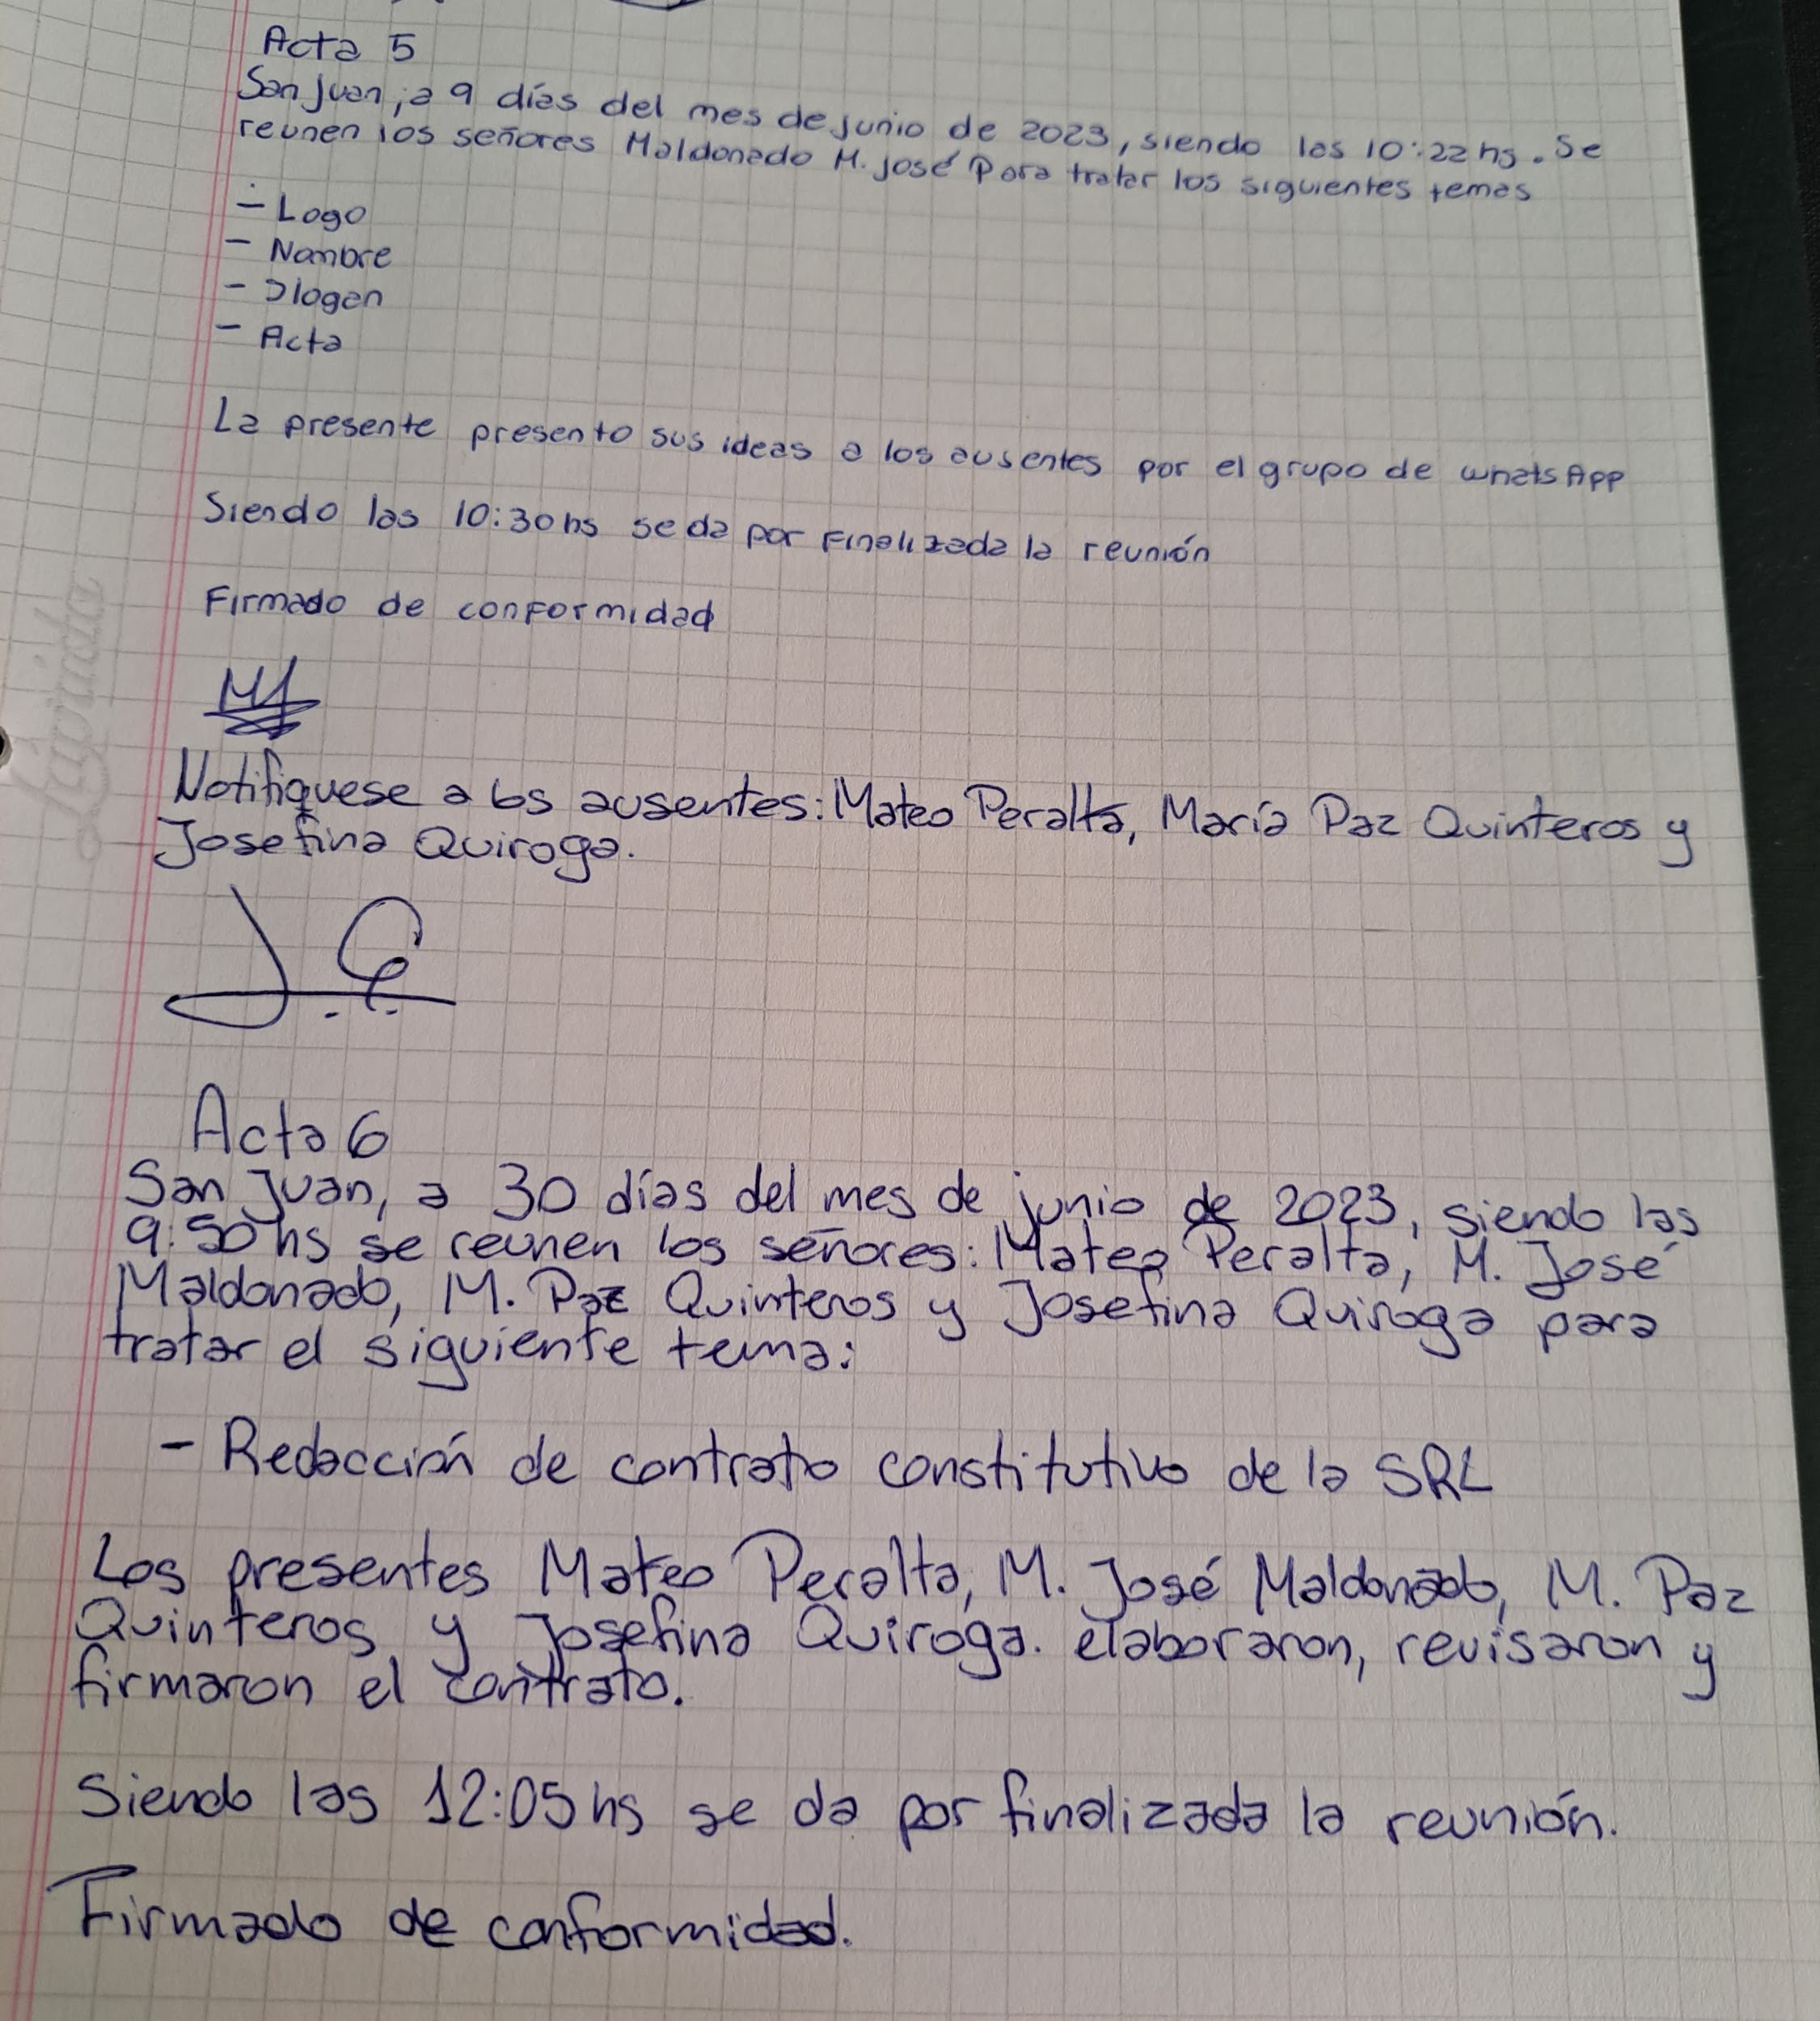 Acta 5
San Juan, a 9 días del mes de junio de 2023, siendo las 10:22 hs. Se
reunen los señores Maldonado M. José Para tratar los siguientes temas
- Logo
- Nombre
- Slogan
- Acta
La presente presento sus ideas a los ausentes por el grupo de whatsApp
Siendo las 10:30 hs se da por Finalizada la reunión
Firmado de conformidad
Notifiquese a los ausentes: Mateo Peralta, María Paz Quinteros y
Josefina Quiroga.
Acta 6
San Juan, a 30 días del mes de junio de 2023, siendo las
9:50 hs se reunen los señores: Mateo Peralta, M. José
Maldonado, M. Paz Quinteros y Josefina Quiroga para
tratar el siguiente tema:
- Redacción de contrato constitutivo de la SRL
Los presentes Mateo Peralta, M. José Maldonado, M. Paz
Quinteros y Josefina Quiroga. elaboraron, revisaron y
firmaron el contrato.
Siendo las 12:05 hs se da por finalizada la reunión.
Firmado de conformidad.